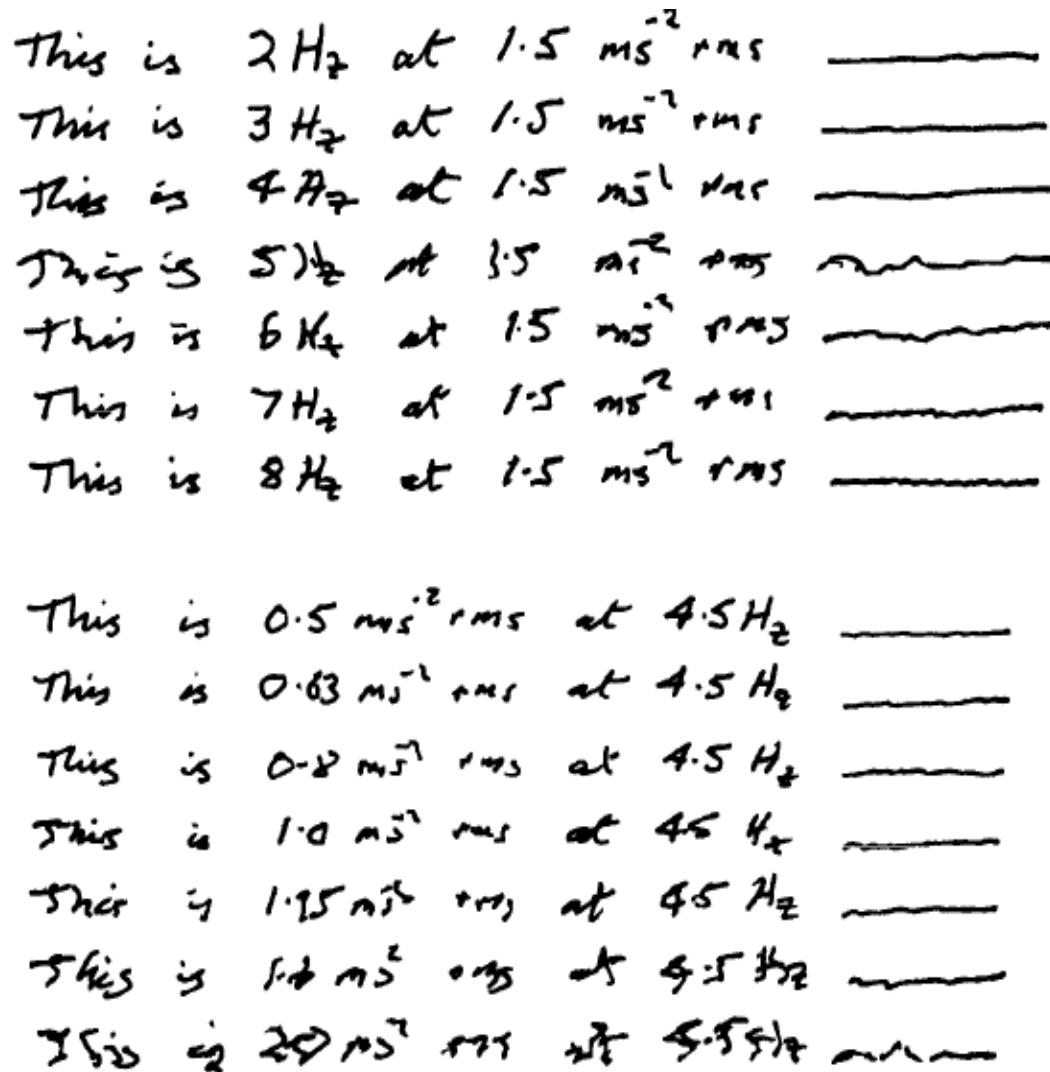 This is 2 Hz at 1.5 ms⁻² rms
This is 3 Hz at 1.5 ms⁻² rms
This is 4 Hz at 1.5 ms⁻² rms
This is 5 Hz at 1.5 ms⁻² rms
This is 6 Hz at 1.5 ms⁻² rms
This is 7 Hz at 1.5 ms⁻² rms
This is 8 Hz at 1.5 ms⁻² rms
This is 0.5 ms⁻² rms at 4.5 Hz
This is 0.63 ms⁻² rms at 4.5 Hz
This is 0.8 ms⁻² rms at 4.5 Hz
This is 1.0 ms⁻² rms at 4.5 Hz
This is 1.25 ms⁻² rms at 4.5 Hz
This is ms⁻² rms at 4.5 Hz
This is ms⁻² rms at 4.5 Hz